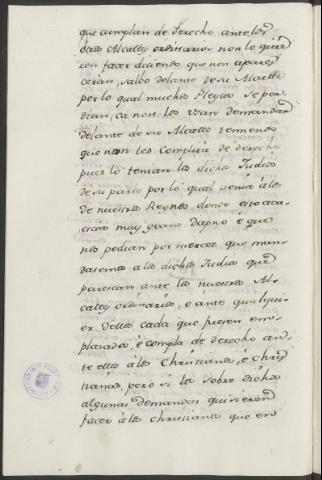 que cumplan de derecho ante los
dhos Alcalles ordinarios non lo quie
ren facer diciendo que non apares
cerian, salbo delante de su Alcalle
por lo qual muchos Pleytos se per
dian, cá non los van demandar
delante de su Alcalle temiendo
que non les complirá de derecho
pues lo tenian los dichos Judios
de su parte por lo qual venia á los
de nuestros Reynos donde esto aca
escia muy grand dapno é que
nos pedian por merced que man
dasemos a los dichos Judios que
paresican ante los nuestros Al
calles ordinarios, e ante qualqui-
er dellos cada que fuesen em-
plazados, é compla de derecho an-
te ellos á los Christianos, é Chris
tianas, pero si los sobre dichos
algunas demandas quisieren
facer á los christianos que en